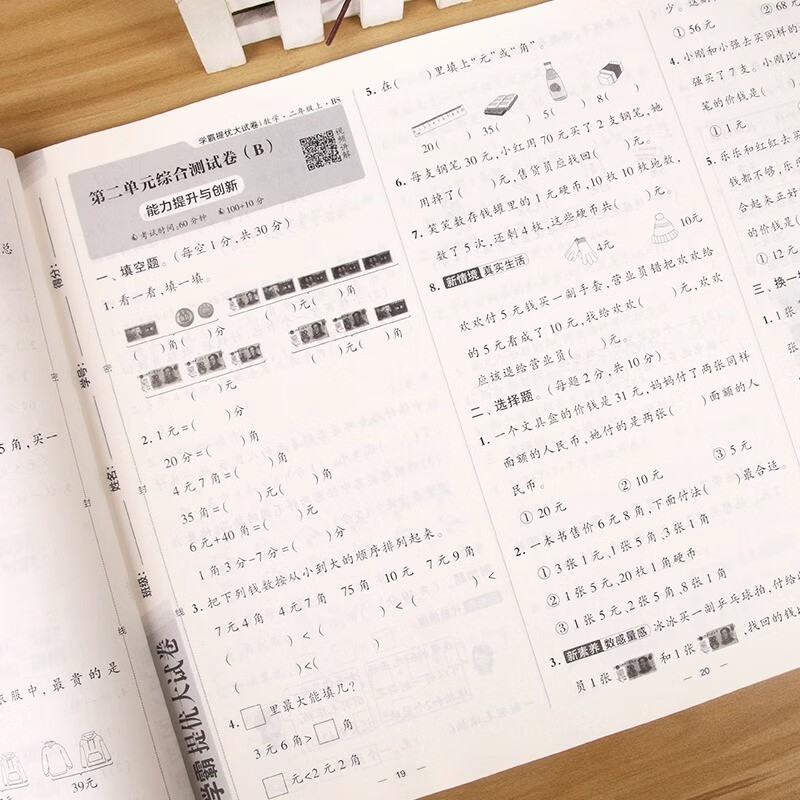 总
5角,买一
衣服中,最贵的是
39元
得分:
学号:
姓名:
班级:
密
封
线
学霸提优大试卷
学霸提优大试卷 | 数学·二年级上·BS
第二单元综合测试卷(B)
能力提升与创新
考试时间:60分钟 100+10分
视频讲解
一、填空题。(每空1分,共30分)
1. 看一看,填一填。
( )角( )分
( )元( )角
( )元
( )元( )角
2. 1元=( )分
20分=( )角
4元7角=( )角
35角=( )元( )角
6元+40角=( )元
1角3分-7分=( )分
3. 把下列钱数按从小到大的顺序排列起来。
7元4角 4元7角 75角 10元 7元9角
( )<( )<( )<
( )<( )
4. □里最大能填几?
3元6角>□角
□元<2元2角
19
5. 在( )里填上“元”或“角”。
20( ) 35( ) 5( ) 8( )
6. 每支钢笔30元,小红用70元买了2支钢笔,她
用掉了( )元,售货员应找回( )元。
7. 笑笑数存钱罐里的1元硬币,10枚10枚地数,
数了5次,还剩4枚,这些硬币共( )元。
8. 新情境 真实生活
4元
10元
欢欢付5元钱买一副手套,营业员错把欢欢给
的5元看成了10元,找给欢欢( )元,欢欢
应该退给营业员( )元。
二、选择题。(每题2分,共10分)
1. 一个文具盒的价钱是31元,妈妈付了两张同样
面额的人民币,她付的是两张( )面额的人
民币。
①20元 ②10元 ③5元
2. 一本书售价6元8角,下面付法( )最合适。
①3张1元,1张5角,3张1角
②1张5元,20枚1角硬币
③1张5元,2张5角,8张1角
3. 新素养 数感量感 冰冰买一副乒乓球拍,付给
员1张 和1张 ,找回的钱
20
①56元 ②68元
4. 小刚和小强去买同样的
强买了7支。小刚比
笔的价钱是(
①1元
5. 乐乐和红红去买
钱都不够,乐
合起来正好
的价钱是(
①12元
三、换一
1. 1张
1张